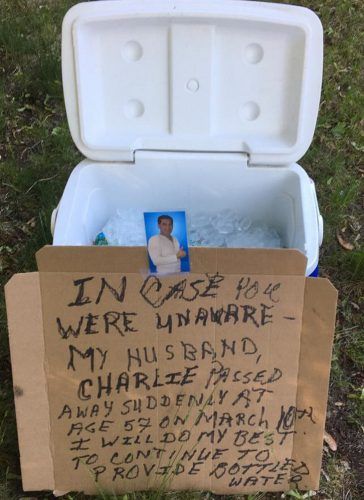 IN CASE YOU
WERE UNAWARE -
MY HUSBAND,
CHARLIE PASSED
AWAY SUDDENLY AT
AGE 57 ON MARCH 10TH
I WILL DO MY BEST
TO CONTINUE TO
PROVIDE BOTTLED
WATER